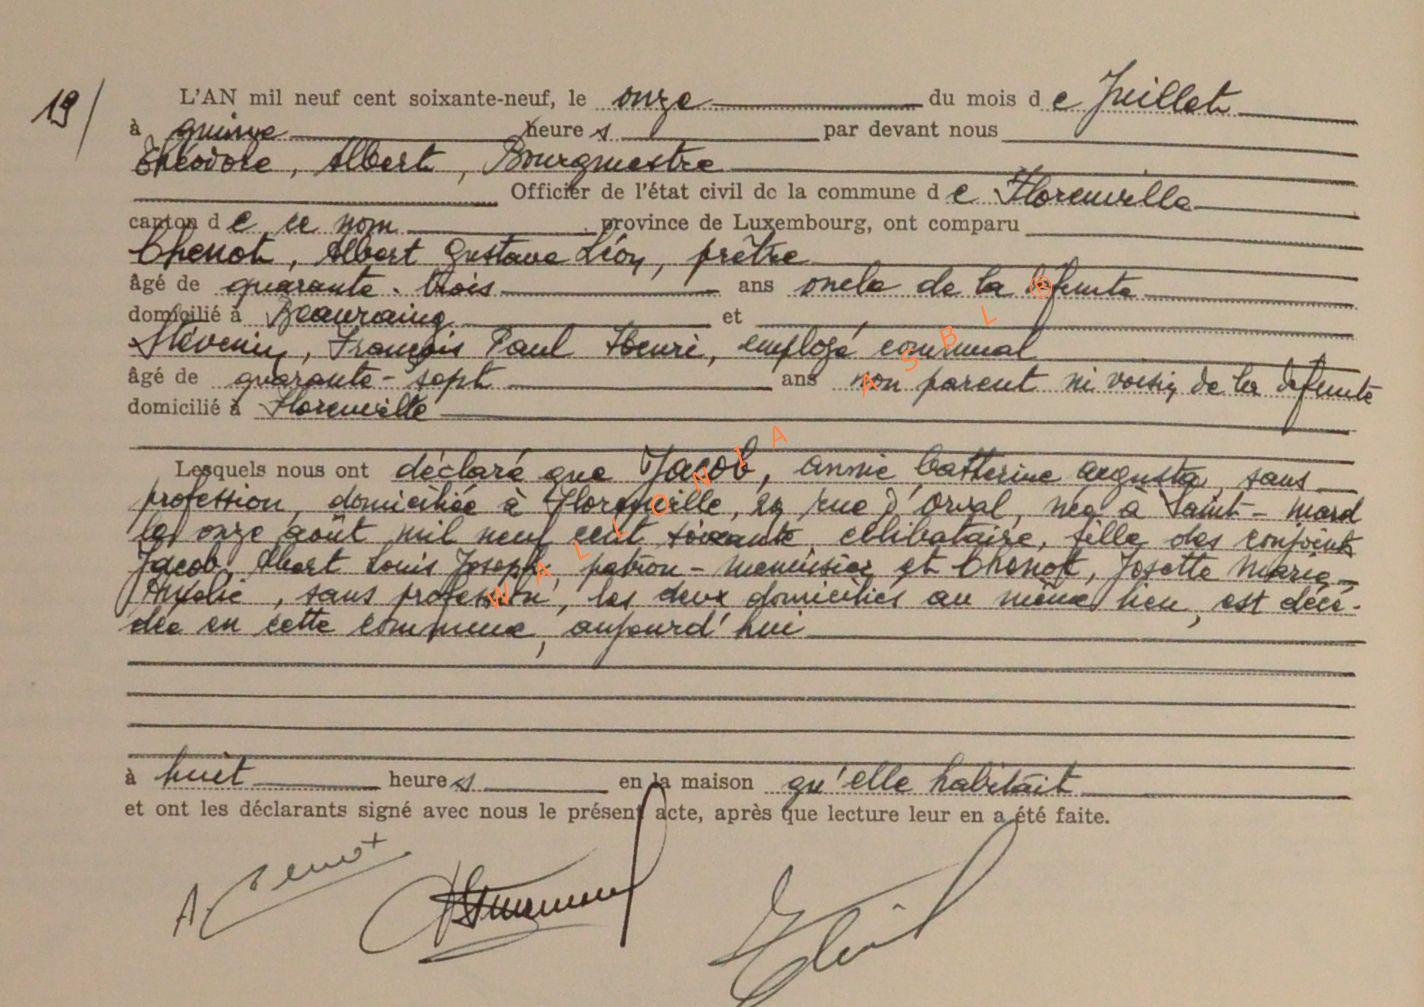 19/
L'AN mil neuf cent soixante-neuf, le onze du mois de Juillet
à quinze heures par devant nous
Théodore, Albert, Bourgmestre
Officier de l'état civil de la commune de Florenville
canton de ce nom province de Luxembourg, ont comparu
Chenot, Albert Gustave Léon, prêtre
âgé de quarante-trois ans oncle de la défunte
domicilié à Beauraing et
Stévenin, François Paul Henri, employé communal
âgé de quarante-sept ans non parent ni voisin de la défunte
domicilié à Florenville
Lesquels nous ont déclaré que Jacob, Annie Catherine Augusta, sans
profession, domiciliée à Florenville, rue d'Orval, née à Saint-Mard
le onze août mil neuf cent soixante, célibataire, fille des conjoints
Jacob, Albert Louis Joseph, patron-menuisier et Chenot, Josette Marie-
Amélie, sans profession, les deux domiciliés au même lieu, est décé-
dée en cette commune, aujourd'hui
à huit heures en la maison qu'elle habitait
et ont les déclarants signé avec nous le présent acte, après que lecture leur en a été faite.
A. Chenot
WALLONIA ASBL ©